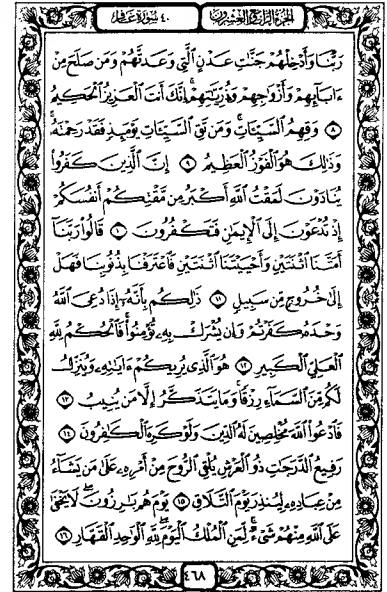 الجزء الرابع والعشرون
٤٠ سورة غافر
رَبَّنَا وَأَدْخِلْهُمْ جَنَّٰتِ عَدْنٍ ٱلَّتِى وَعَدتَّهُمْ وَمَن صَلَحَ مِنْ
ءَابَآئِهِمْ وَأَزْوَٰجِهِمْ وَذُرِّيَّٰتِهِمْ ۚ إِنَّكَ أَنتَ ٱلْعَزِيزُ ٱلْحَكِيمُ
٨ وَقِهِمُ ٱلسَّيِّـَٔاتِ ۚ وَمَن تَقِ ٱلسَّيِّـَٔاتِ يَوْمَئِذٍ فَقَدْ رَحِمْتَهُۥ ۚ
وَذَٰلِكَ هُوَ ٱلْفَوْزُ ٱلْعَظِيمُ ٩ إِنَّ ٱلَّذِينَ كَفَرُوا۟
يُنَادَوْنَ لَمَقْتُ ٱللَّهِ أَكْبَرُ مِن مَّقْتِكُمْ أَنفُسَكُمْ
إِذْ تُدْعَوْنَ إِلَى ٱلْإِيمَٰنِ فَتَكْفُرُونَ ١٠ قَالُوا۟ رَبَّنَآ
أَمَتَّنَا ٱثْنَتَيْنِ وَأَحْيَيْتَنَا ٱثْنَتَيْنِ فَٱعْتَرَفْنَا بِذُنُوبِنَا فَهَلْ
إِلَىٰ خُرُوجٍ مِّن سَبِيلٍ ١١ ذَٰلِكُم بِأَنَّهُۥٓ إِذَا دُعِىَ ٱللَّهُ
وَحْدَهُۥ كَفَرْتُمْ ۖ وَإِن يُشْرَكْ بِهِۦ تُؤْمِنُوا۟ ۚ فَٱلْحُكْمُ لِلَّهِ
ٱلْعَلِىِّ ٱلْكَبِيرِ ١٢ هُوَ ٱلَّذِى يُرِيكُمْ ءَايَٰتِهِۦ وَيُنَزِّلُ
لَكُم مِّنَ ٱلسَّمَآءِ رِزْقًا ۚ وَمَا يَتَذَكَّرُ إِلَّا مَن يُنِيبُ ١٣
فَٱدْعُوا۟ ٱللَّهَ مُخْلِصِينَ لَهُ ٱلدِّينَ وَلَوْ كَرِهَ ٱلْكَٰفِرُونَ ١٤
رَفِيعُ ٱلدَّرَجَٰتِ ذُو ٱلْعَرْشِ يُلْقِى ٱلرُّوحَ مِنْ أَمْرِهِۦ عَلَىٰ مَن يَشَآءُ
مِنْ عِبَادِهِۦ لِيُنذِرَ يَوْمَ ٱلتَّلَاقِ ١٥ يَوْمَ هُم بَٰرِزُونَ ۖ لَا يَخْفَىٰ
عَلَى ٱللَّهِ مِنْهُمْ شَىْءٌ ۚ لِّمَنِ ٱلْمُلْكُ ٱلْيَوْمَ ۖ لِلَّهِ ٱلْوَٰحِدِ ٱلْقَهَّارِ ١٦
٤٦٨